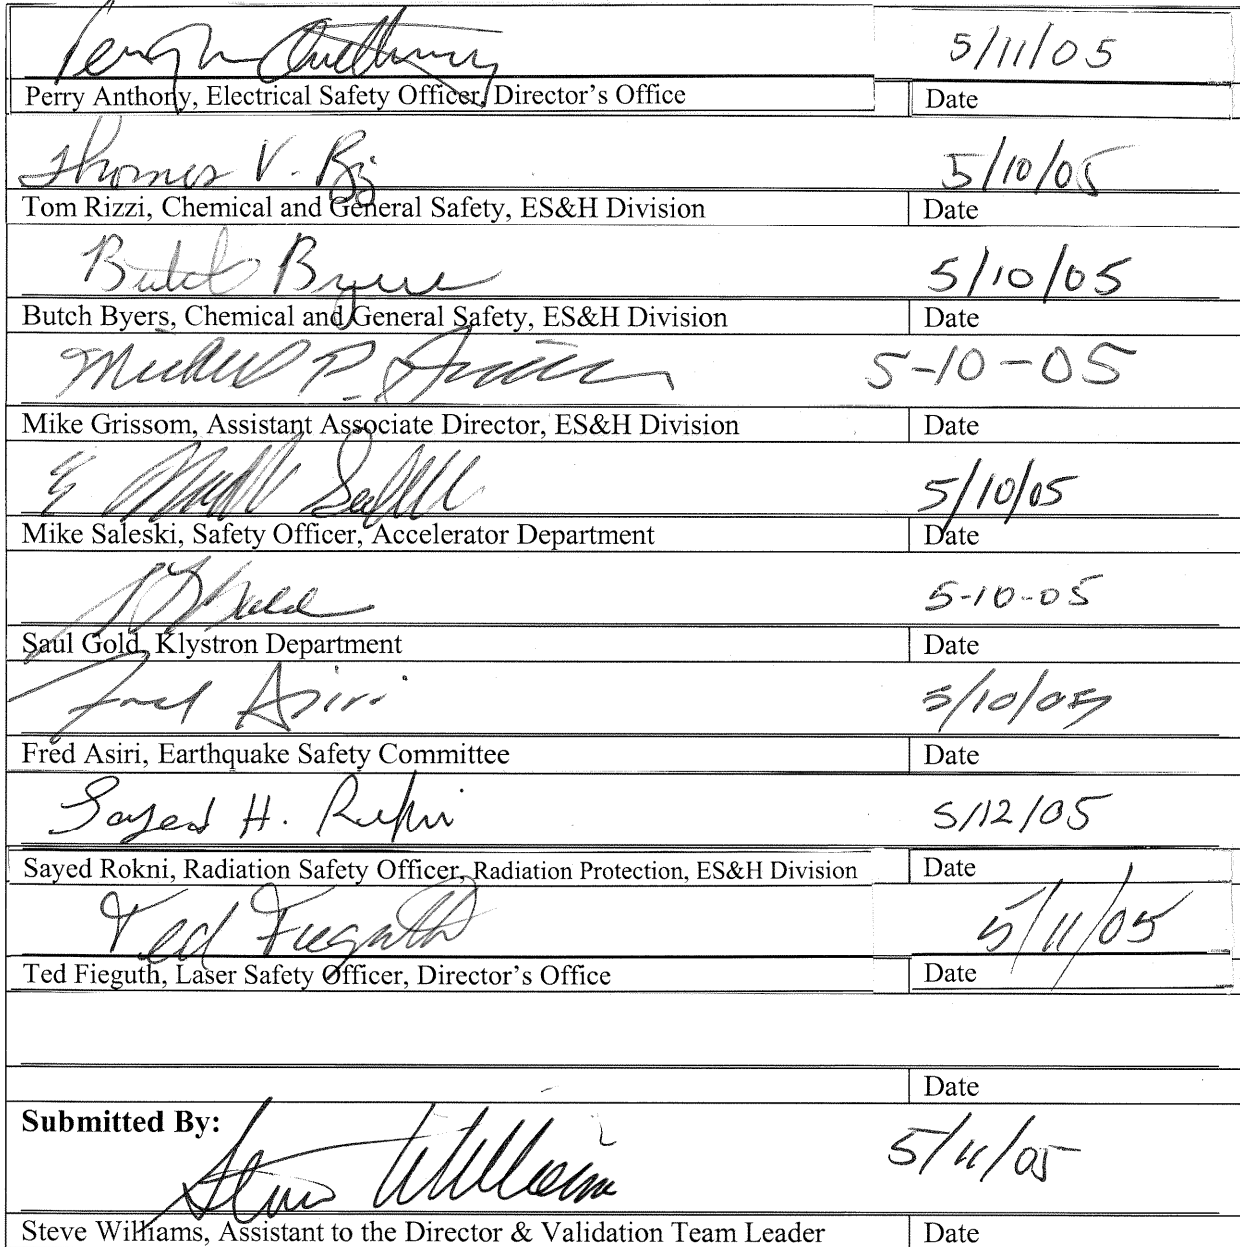 Perry Anthony 5/11/05
Perry Anthony, Electrical Safety Officer, Director's Office Date
Thomas V. 5/10/05
Tom Rizzi, Chemical and General Safety, ES&H Division Date
Butch Byers 5/10/05
Butch Byers, Chemical and General Safety, ES&H Division Date
Michael P. 5-10-05
Mike Grissom, Assistant Associate Director, ES&H Division Date
5/10/05
Mike Saleski, Safety Officer, Accelerator Department Date
5-10-05
Saul Gold, Klystron Department Date
Fred Asiri 5/10/05
Fred Asiri, Earthquake Safety Committee Date
Sayed H. Rokni 5/12/05
Sayed Rokni, Radiation Safety Officer, Radiation Protection, ES&H Division Date
Ted Fieguth 5/11/05
Ted Fieguth, Laser Safety Officer, Director's Office Date
Date
Submitted By:
Steve Williams 5/11/05
Steve Williams, Assistant to the Director & Validation Team Leader Date